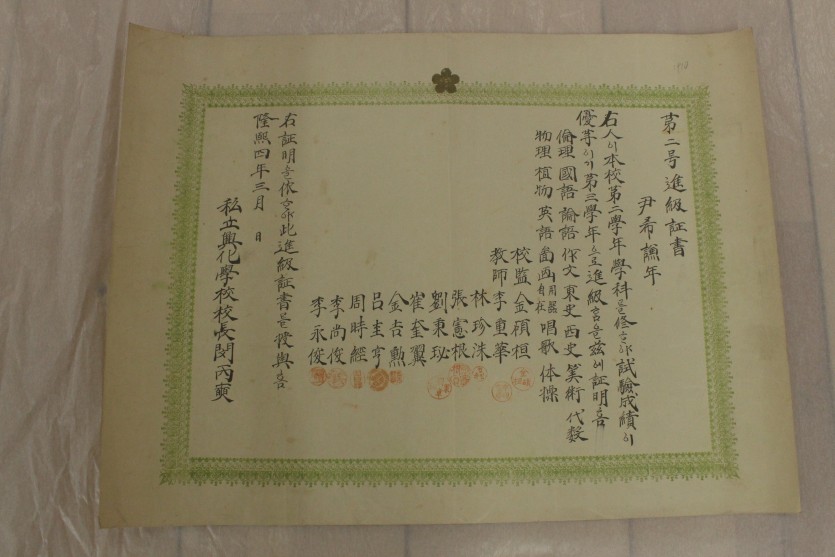 第二号 進級証書
尹希謙 年
右人이 本校 第二學年 學科를 修하야 試驗成績이
優等이기 第三學年으로 進級홈을 玆에 証明홈
倫理 國語 論語 作文 東史 西史 算術 代數
物理 植物 英語 圖画 用器 自在 唱歌 体操
校監 金碩桓
教師 李重華
林珍洙
張憲根
劉秉珌
崔奎翼
金吉勲
呂圭亨
周時經
李尚俊
李永俊
右証明을 依하야 此 進級証書를 授與홈
隆熙四年三月 日
私立興化學校校長 閔丙奭